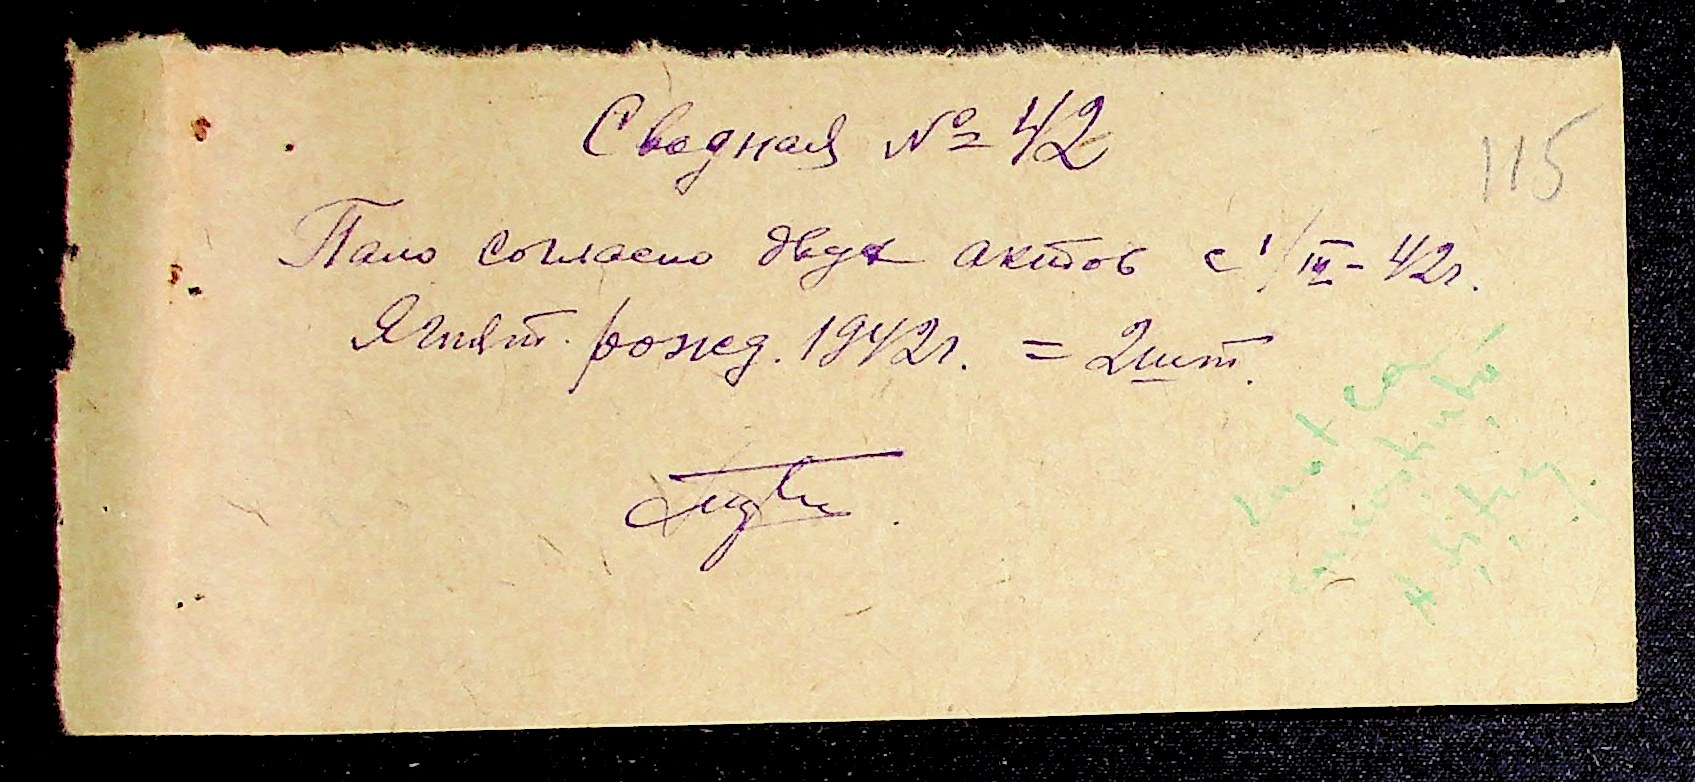 Сводная № 42
115
Пало согласно двух актов с 1/IV - 42г.
Ягнят. рожд. 1942г. = 2 шт.